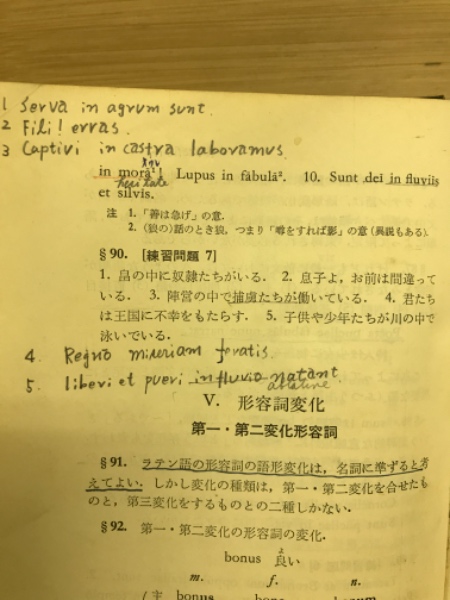 1 Serva in agrum sunt.
2 Fili! erras.
3 Captivi in castra laboramus.
in morā¹! Lupus in fābulā². 10. Sunt deī in fluviīs
hesitate
et silvīs.
注 1.「善は急げ」の意.
2. (狼の)話のとき狼, つまり「噂をすれば影」の意(異説もある).
§90. [練習問題 7]
1. 畠の中に奴隷たちがいる. 2. 息子よ, お前は間違って
いる. 3. 陣営の中で捕虜たちが働いている. 4. 君たち
は王国に不幸をもたらす. 5. 子供や少年たちが川の中で
泳いでいる.
4. Regno miseriam feratis.
5. liberi et pueri in fluvio natant.
V. 形容詞変化
第一・第二変化形容詞
§91. ラテン語の形容詞の語形変化は, 名詞に準ずると考
えてよい. しかし変化の種類は, 第一・第二変化を合せたも
のと, 第三変化をするものとの二種しかない.
§92. 第一・第二変化の形容詞の変化.
bonus 良い
m. f. n.
(主 bonus bona bonum